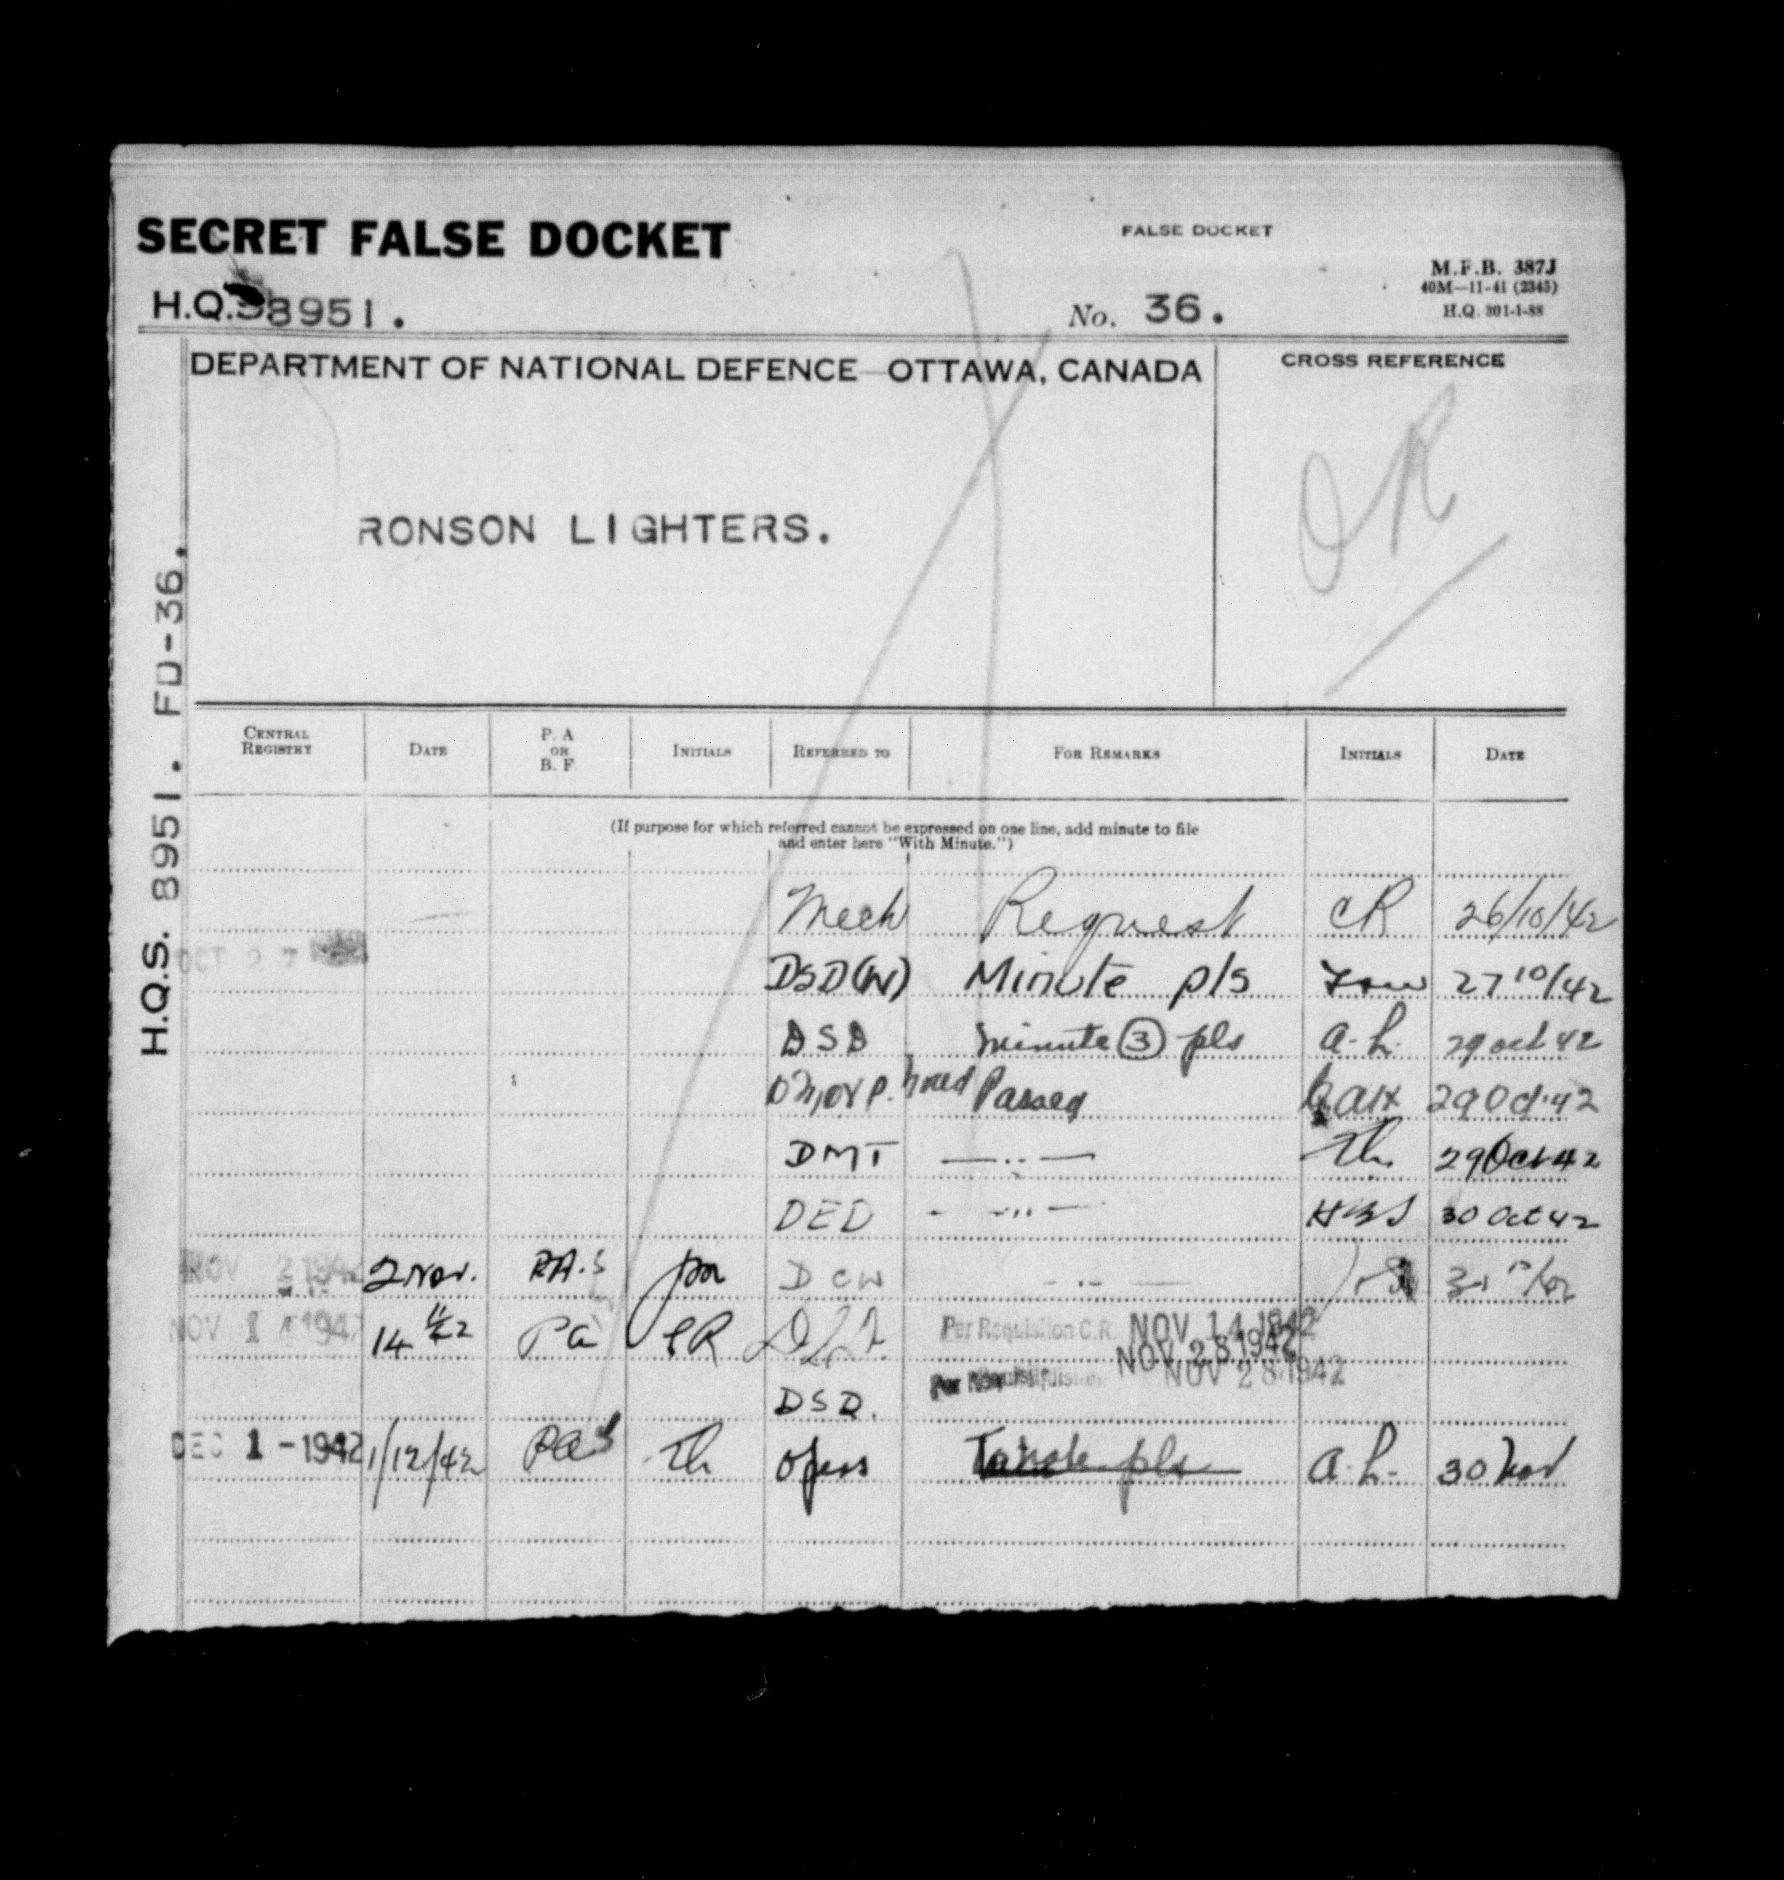 SECRET FALSE DOCKET
FALSE DOCKET
M.F.B. 387J
40M—11-41 (2345)
H.Q. 301-1-88
H.Q.S. 8951.
No. 36.
DEPARTMENT OF NATIONAL DEFENCE OTTAWA, CANADA
CROSS REFERENCE
RONSON LIGHTERS.
H.Q.S. 8951. FD-36.
CENTRAL REGISTRY DATE P. A OR B. F INITIALS REFERRED TO FOR REMARKS INITIALS DATE
(If purpose for which referred cannot be expressed on one line, add minute to file
and enter here "With Minute.")
Mech Request CR 26/10/42
OCT 27
DSD(W) Minute pls 27 10/42
DSD Minute (3) pls a.h. 29 Oct 42
Passed 29 Oct. 42
DMT —..— 29 Oct 42
DED - -"- HBS 30 Oct 42
NOV 2 1942 2 Nov. P.A.S DCW -"-
NOV 14 1942 14 11/42 PA CR Per Requisition C.R. NOV 14 1942
NOV 28 1942
DSD. Per Requisition NOV 28 1942
DEC 1 - 1942 1/12/42 PAS Th Opns pls a.h. 30 Nov